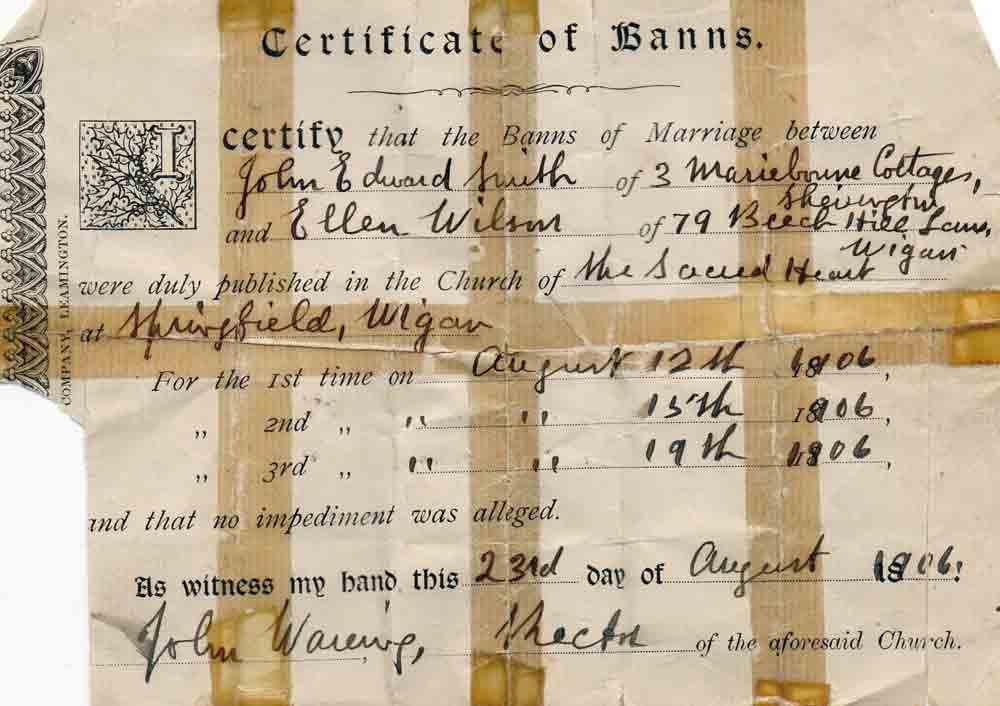 Certificate of Banns.
I certify that the Banns of Marriage between
John Edward Smith of 3 Mariebonne Cottages,
Shevington
and Ellen Wilson of 79 Beech Hill Lane,
Wigan
were duly published in the Church of the Sacred Heart
at Springfield, Wigan
For the 1st time on August 12th 1906,
„ 2nd „ " " 15th 1906,
„ 3rd „ " " 19th 1906,
and that no impediment was alleged.
As witness my hand this 23rd day of August 1906.
John Waring, Rector of the aforesaid Church.
COMPANY, LEAMINGTON.